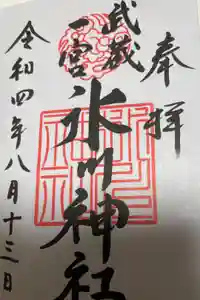 奉拝
武蔵一宮
氷川神社
令和四年八月十三日